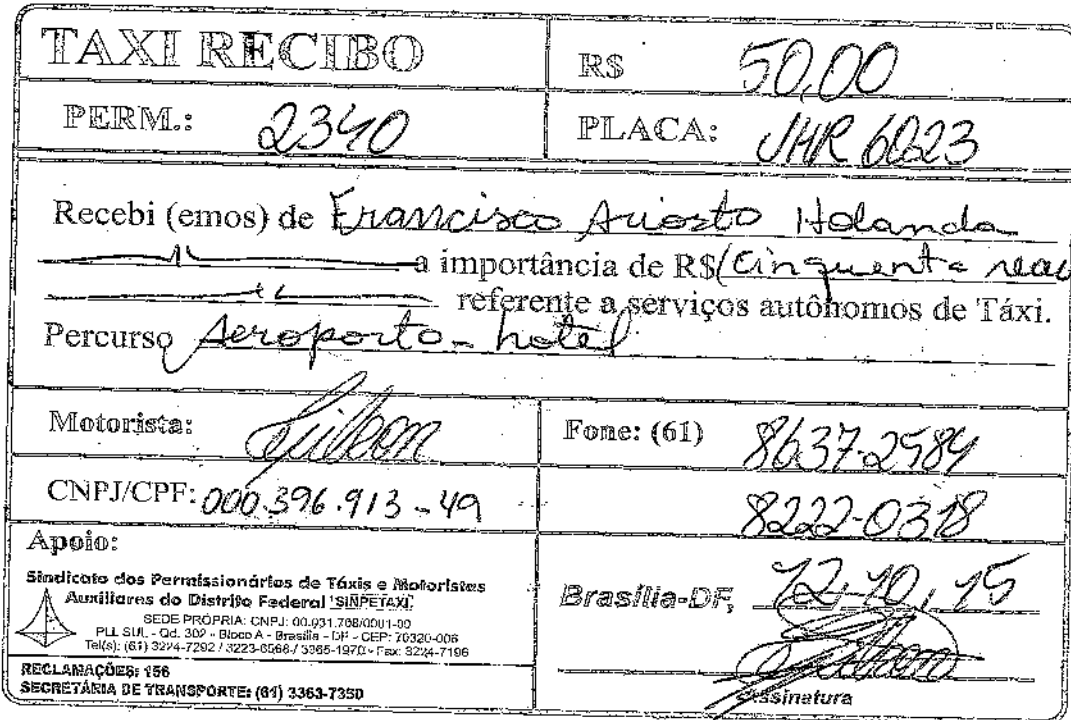 TAXI RECIBO R$ 50,00
PERM.: 2340 PLACA: JHR 6023
Recebi (emos) de Francisco Ariosto Holanda
a importância de R$ (Cinquenta reais
referente a serviços autônomos de Táxi.
Percurso Aeroporto - hotel
Motorista: Gilson Fone: (61) 8637-2584
CNPJ/CPF: 000.396.913-49 8222-0318
Apoio:
Sindicato dos Permissionários de Táxis e Motoristas
Auxiliares do Distrito Federal "SINPETAXI"
SEDE PRÓPRIA: CNPJ: 00.031.708/0001-00
PLL SUL - Qd. 302 - Bloco A - Brasília - DF - CEP: 70320-006
Tel(s): (61) 3224-7292 / 3223-6966 / 3365-1970 - Fax: 3224-7196
RECLAMAÇÕES: 156
SECRETÁRIA DE TRANSPORTE: (61) 3363-7350
Brasília-DF, 12, 10, 15
Assinatura